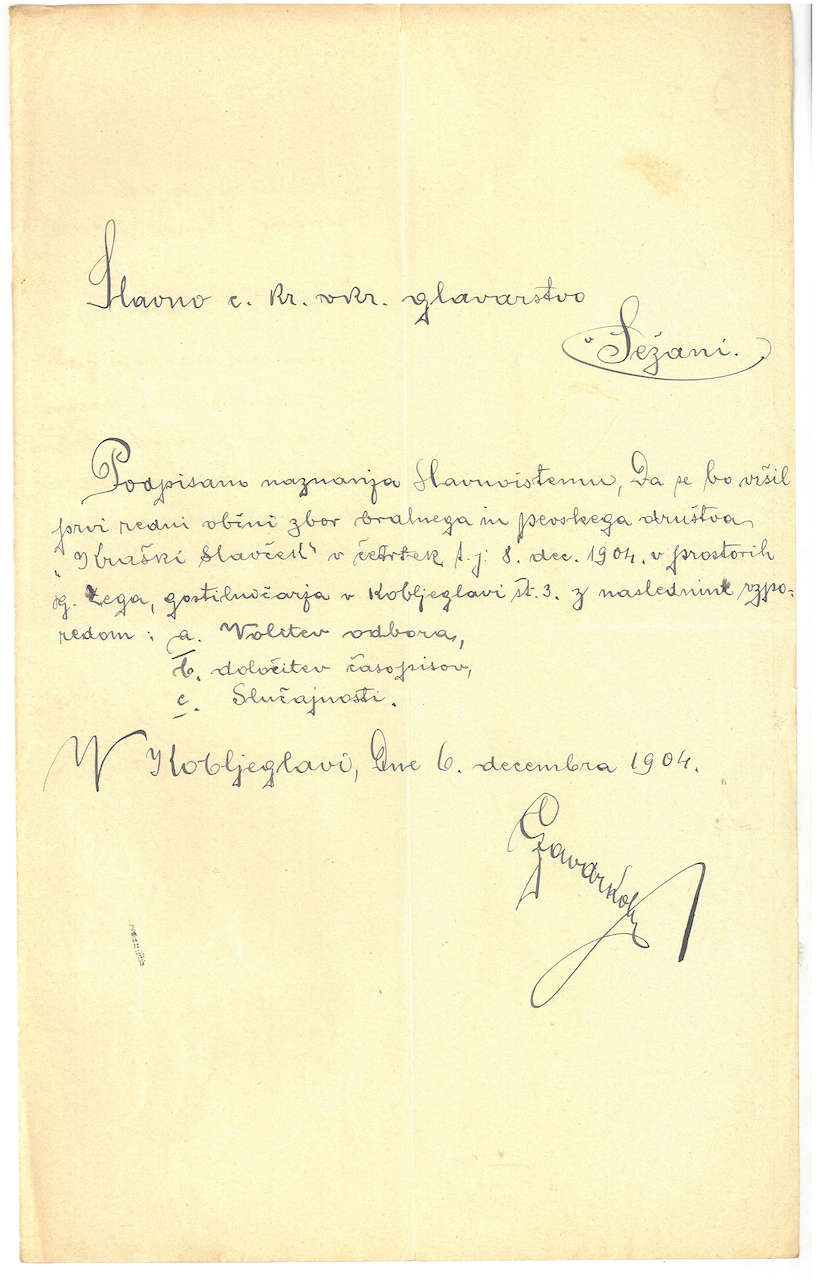 Slavno c. kr. okr. glavarstvo
v Sežani.
Podpisano naznanja Slavnoistemu, Da se bo vršil
prvi redni občni zbor bralnega in pevskega društva
„Kraški Slavček" v četrtek t. j. 8. dec. 1904. v prostorih
g. Žega, gostilničarja v Kobljeglavi št. 3. z naslednim vzpo-
redom : a. Volitev odbora,
b. določitev časopisov,
c. Slučajnosti.
V Kobljeglavi, Dne 6. decembra 1904.